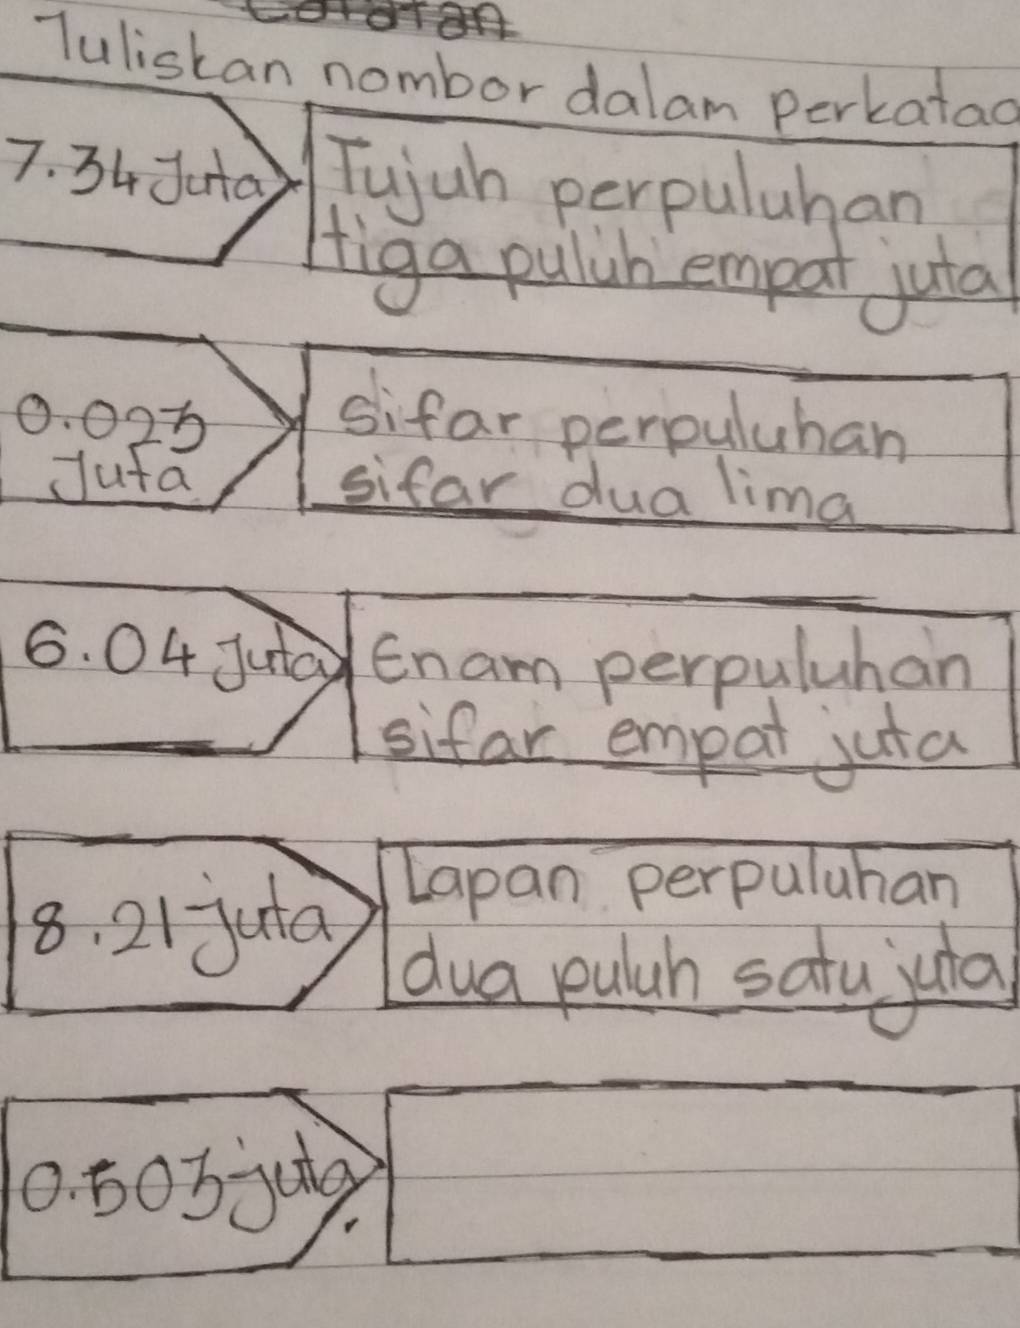 Tuliskan nombor dalam perkataa
7.34 Juta
Tujuh perpuluhan
tiga puluh empat juta
0.025
Juta
Sifar perpuluhan
sifar dua lima
6.04 Juta
Enam perpuluhan
sifar empat juta
8.21 juta
Lapan perpuluhan
dua puluh satu juta
0.503 juta